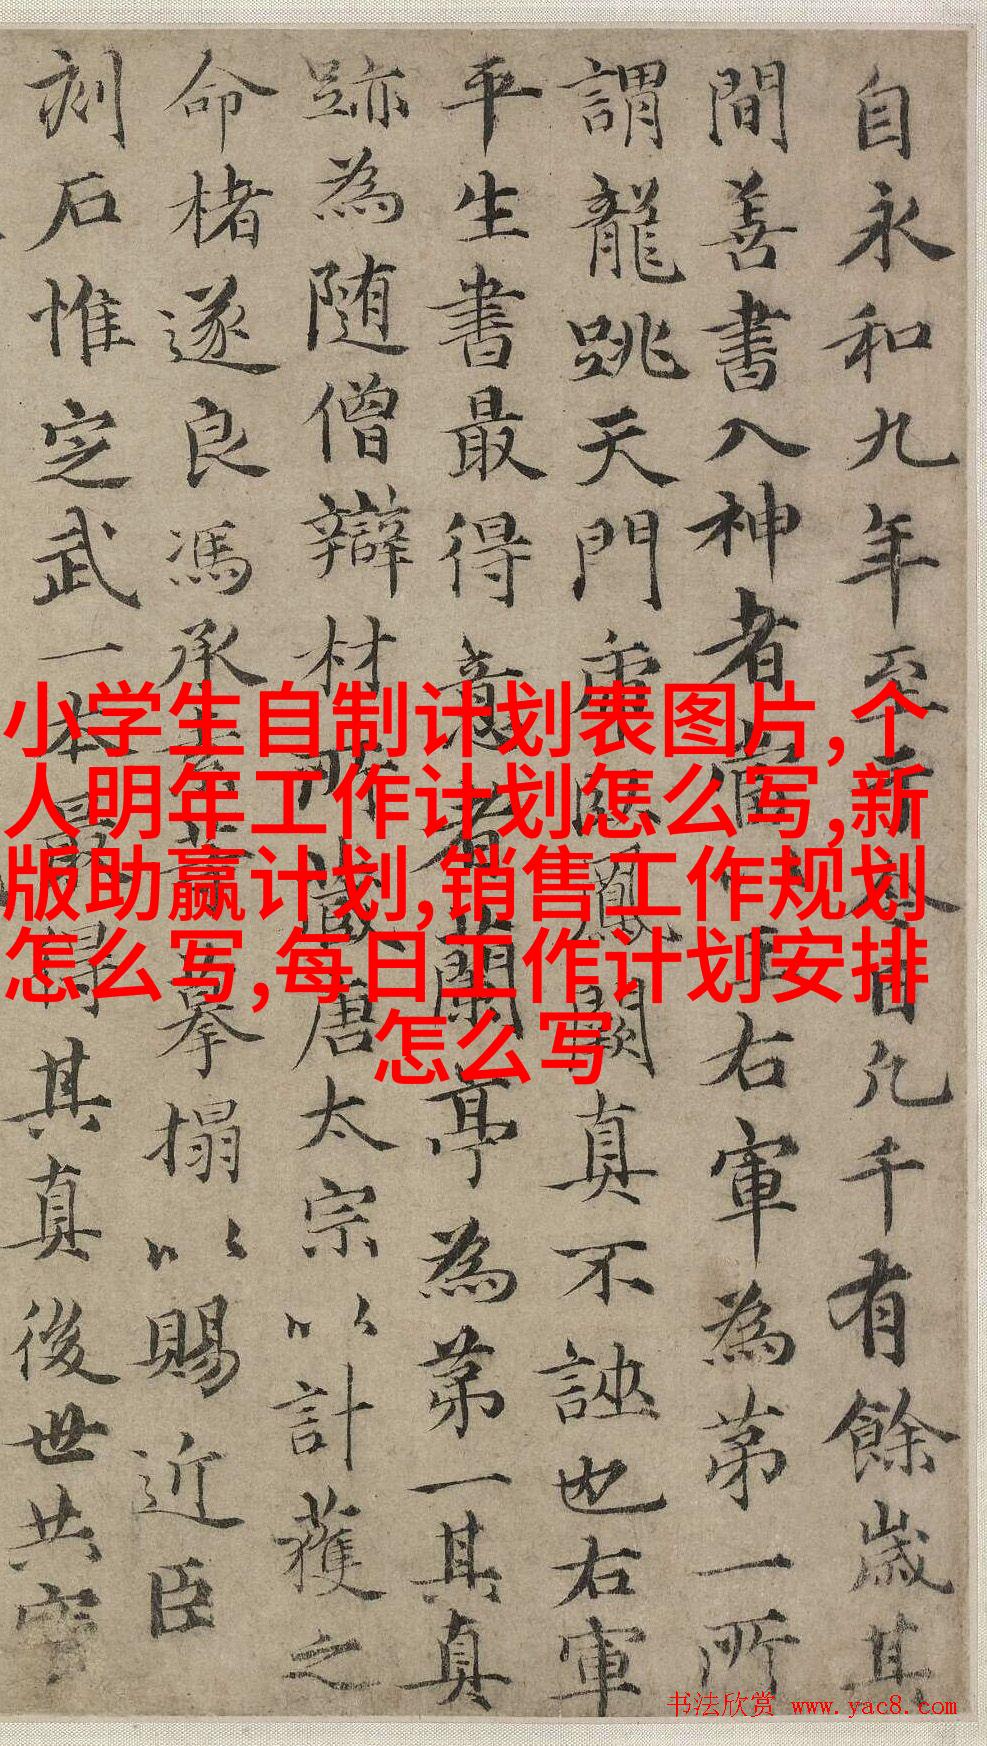 自永和九年至今日凡千有餘歲其
間善書入神者當以王右軍為第一所
謂龍跳天門虎臥鳳閣真不誣也右軍
平生書最得意者蘭亭為第一其真
跡為随僧辯材所藏唐太宗以計獲之
命楮遂良馮承素等摹搨以賜近臣
刻石惟定武一本最得其真後世共寶
小学生自制计划表图片,个
人明年工作计划怎么写,新
版助赢计划,销售工作规划
怎么写,每日工作计划安排
怎么写
书法欣赏 www.yac8.com